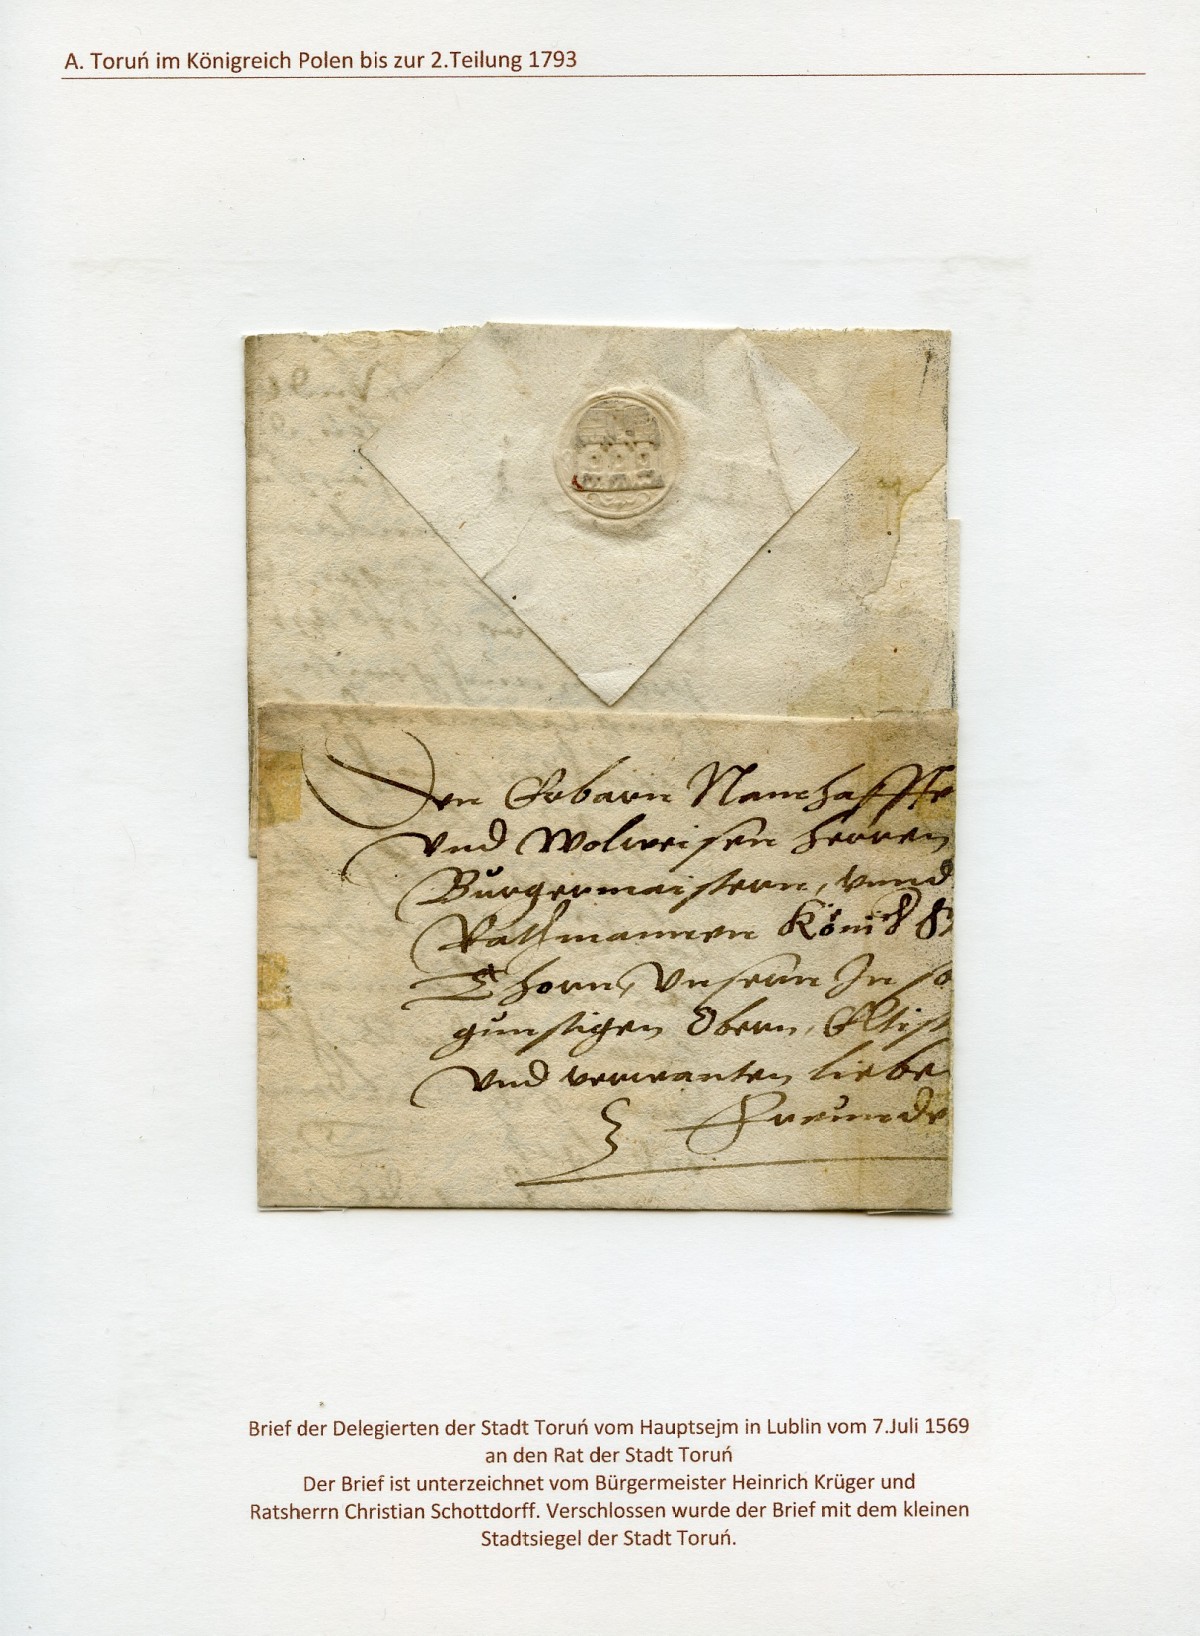 A. Toruń im Königreich Polen bis zur 2.Teilung 1793
Den Erbarn Namhaffte
vnd Wolweisen herren
Burgermaistern, vnnd
Rathmannen Königk
Thorn, Vnsern In so
gunstigen Obern,
vnd verwanten liebe
Freunde
Brief der Delegierten der Stadt Toruń vom Hauptsejm in Lublin vom 7.Juli 1569
an den Rat der Stadt Toruń
Der Brief ist unterzeichnet vom Bürgermeister Heinrich Krüger und
Ratsherrn Christian Schottdorff. Verschlossen wurde der Brief mit dem kleinen
Stadtsiegel der Stadt Toruń.